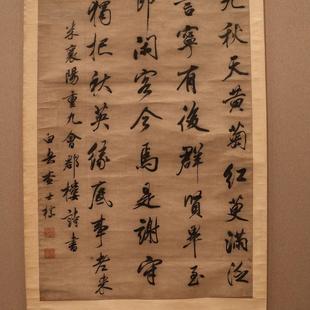 九秋天黃菊紅萸滿泛
言寧有後群賢畢至
郎閑客今焉是謝守
獨把秋英緣底事老來
米襄陽重九會郡樓詩書
白岳查士標